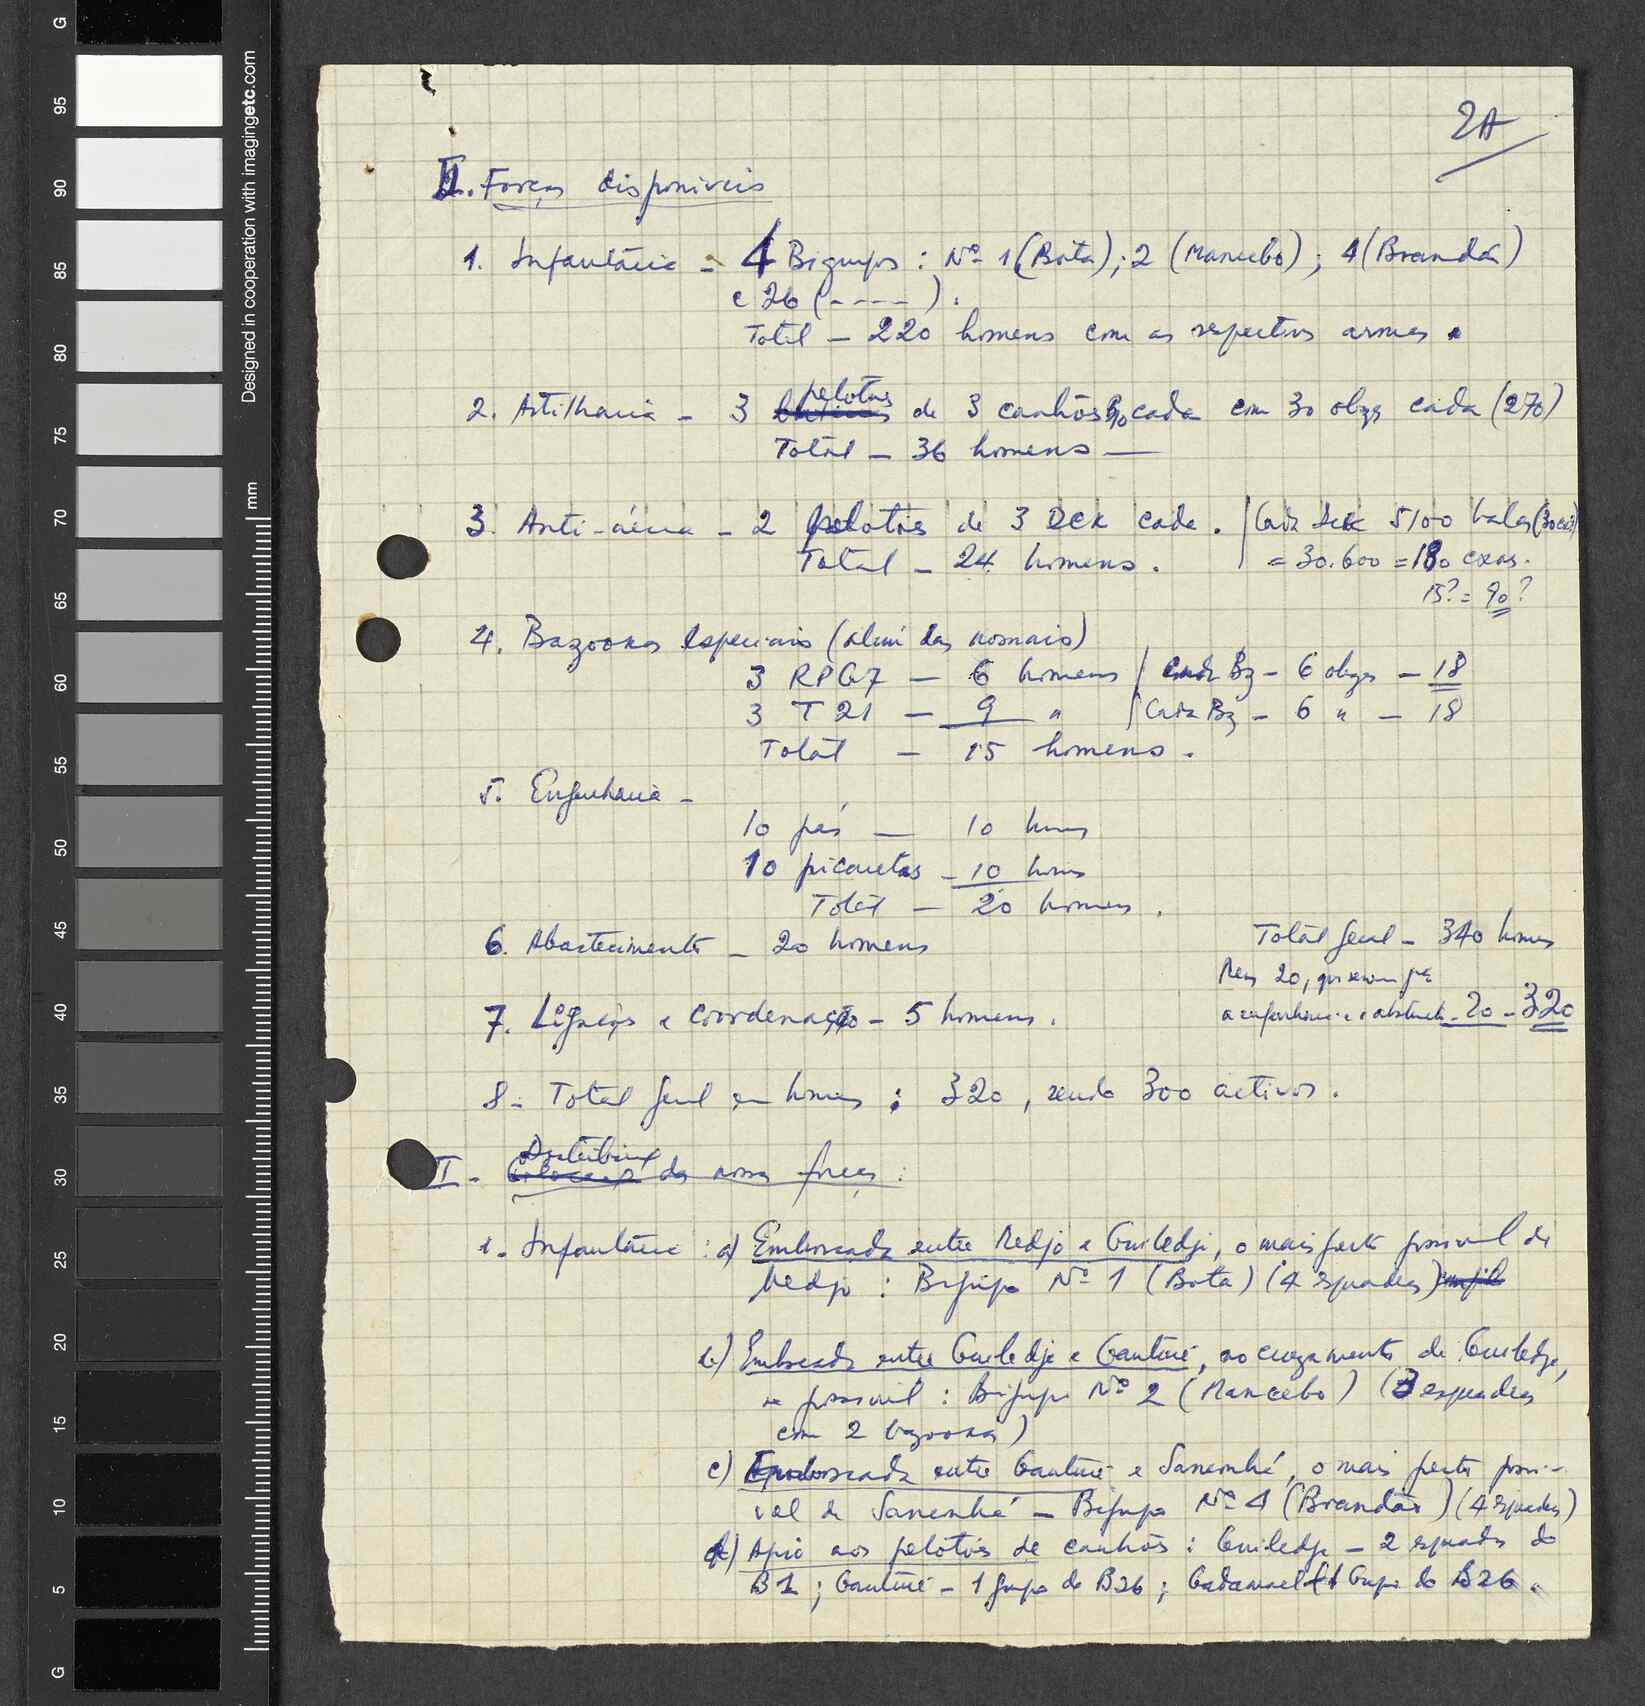 2A
II. Forças disponíveis
1. Infantaria - 4 Bigrupos : Nº 1 (Bota); 2 (Mancebo); 4 (Brandão)
e 26 (----).
Total - 220 homens com as respectivas armas.
pelotões
2. Artilharia - 3 de 3 canhões cada com 30 obuzes cada (270)
Total - 36 homens —
3. Anti-aérea - 2 pelotões de 3 DCK cada. Cada Dck 5100 balas (30 cxs)
Total - 24 homens. = 30.600 = 180 cxas.
15? = 90?
4. Bazookas especiais (além das normais)
3 RPG7 — 6 homens / Cada Bz - 6 obuzes - 18
3 T 21 — 9 " / Cada Bz - 6 " - 18
Total — 15 homens.
5. Engenharia -
10 pás — 10 homens
10 picaretas - 10 homens
Total — 20 homens.
6. Abastecimento - 20 homens
Total geral - 340 homens
Menos 20, que servem p/a
a engenharia e o abastecimento - 20 - 320
7. Ligações e coordenação - 5 homens.
8 - Total geral em homens : 320, sendo 300 activos.
Distribuição
II - das nossas forças :
1. Infantaria : a) Emboscada entre Bedjo e Guiledje, o mais perto possível de
Bedjo : Bigrupo Nº 1 (Bota) (4 esquadras)
b) Emboscada entre Guiledje e Gantúré, no cruzamento de Guiledje,
se possível : Bigrupo Nº 2 (Mancebo) (3 esquadras
com 2 bazookas)
c) Emboscada entre Gantúré e Sanconhá, o mais perto possí-
vel de Sanconhá — Bigrupo Nº 4 (Brandão) (4 esquadras)
d) Apoio aos pelotões de canhões : Guiledje - 2 esquadras do
B 1 ; Gantúré - 1 grupo do B26 ; Gadamael (1 Grupo do B26.
Designed in cooperation with imagingetc.com
mm
G
95
90
85
80
75
70
65
60
55
50
45
40
35
30
25
20
15
10
5
G